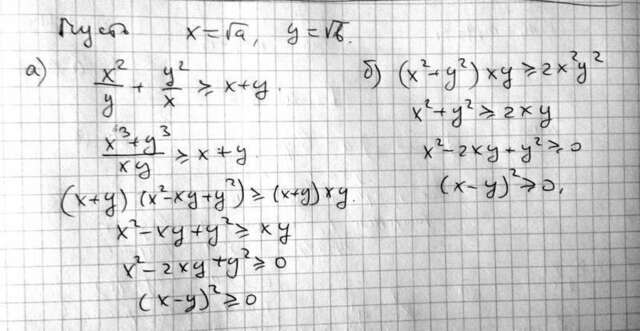 Пусть x=√a, y=√b.
а) x²/y + y²/x ≥ x+y.
(x³+y³)/(xy) ≥ x+y.
(x+y)(x²-xy+y²) ≥ (x+y)xy.
x²-xy+y² ≥ xy
x²-2xy+y² ≥ 0
(x-y)² ≥ 0
б) (x²+y²)xy ≥ 2x²y²
x²+y² ≥ 2xy
x²-2xy+y² ≥ 0
(x-y)² ≥ 0,